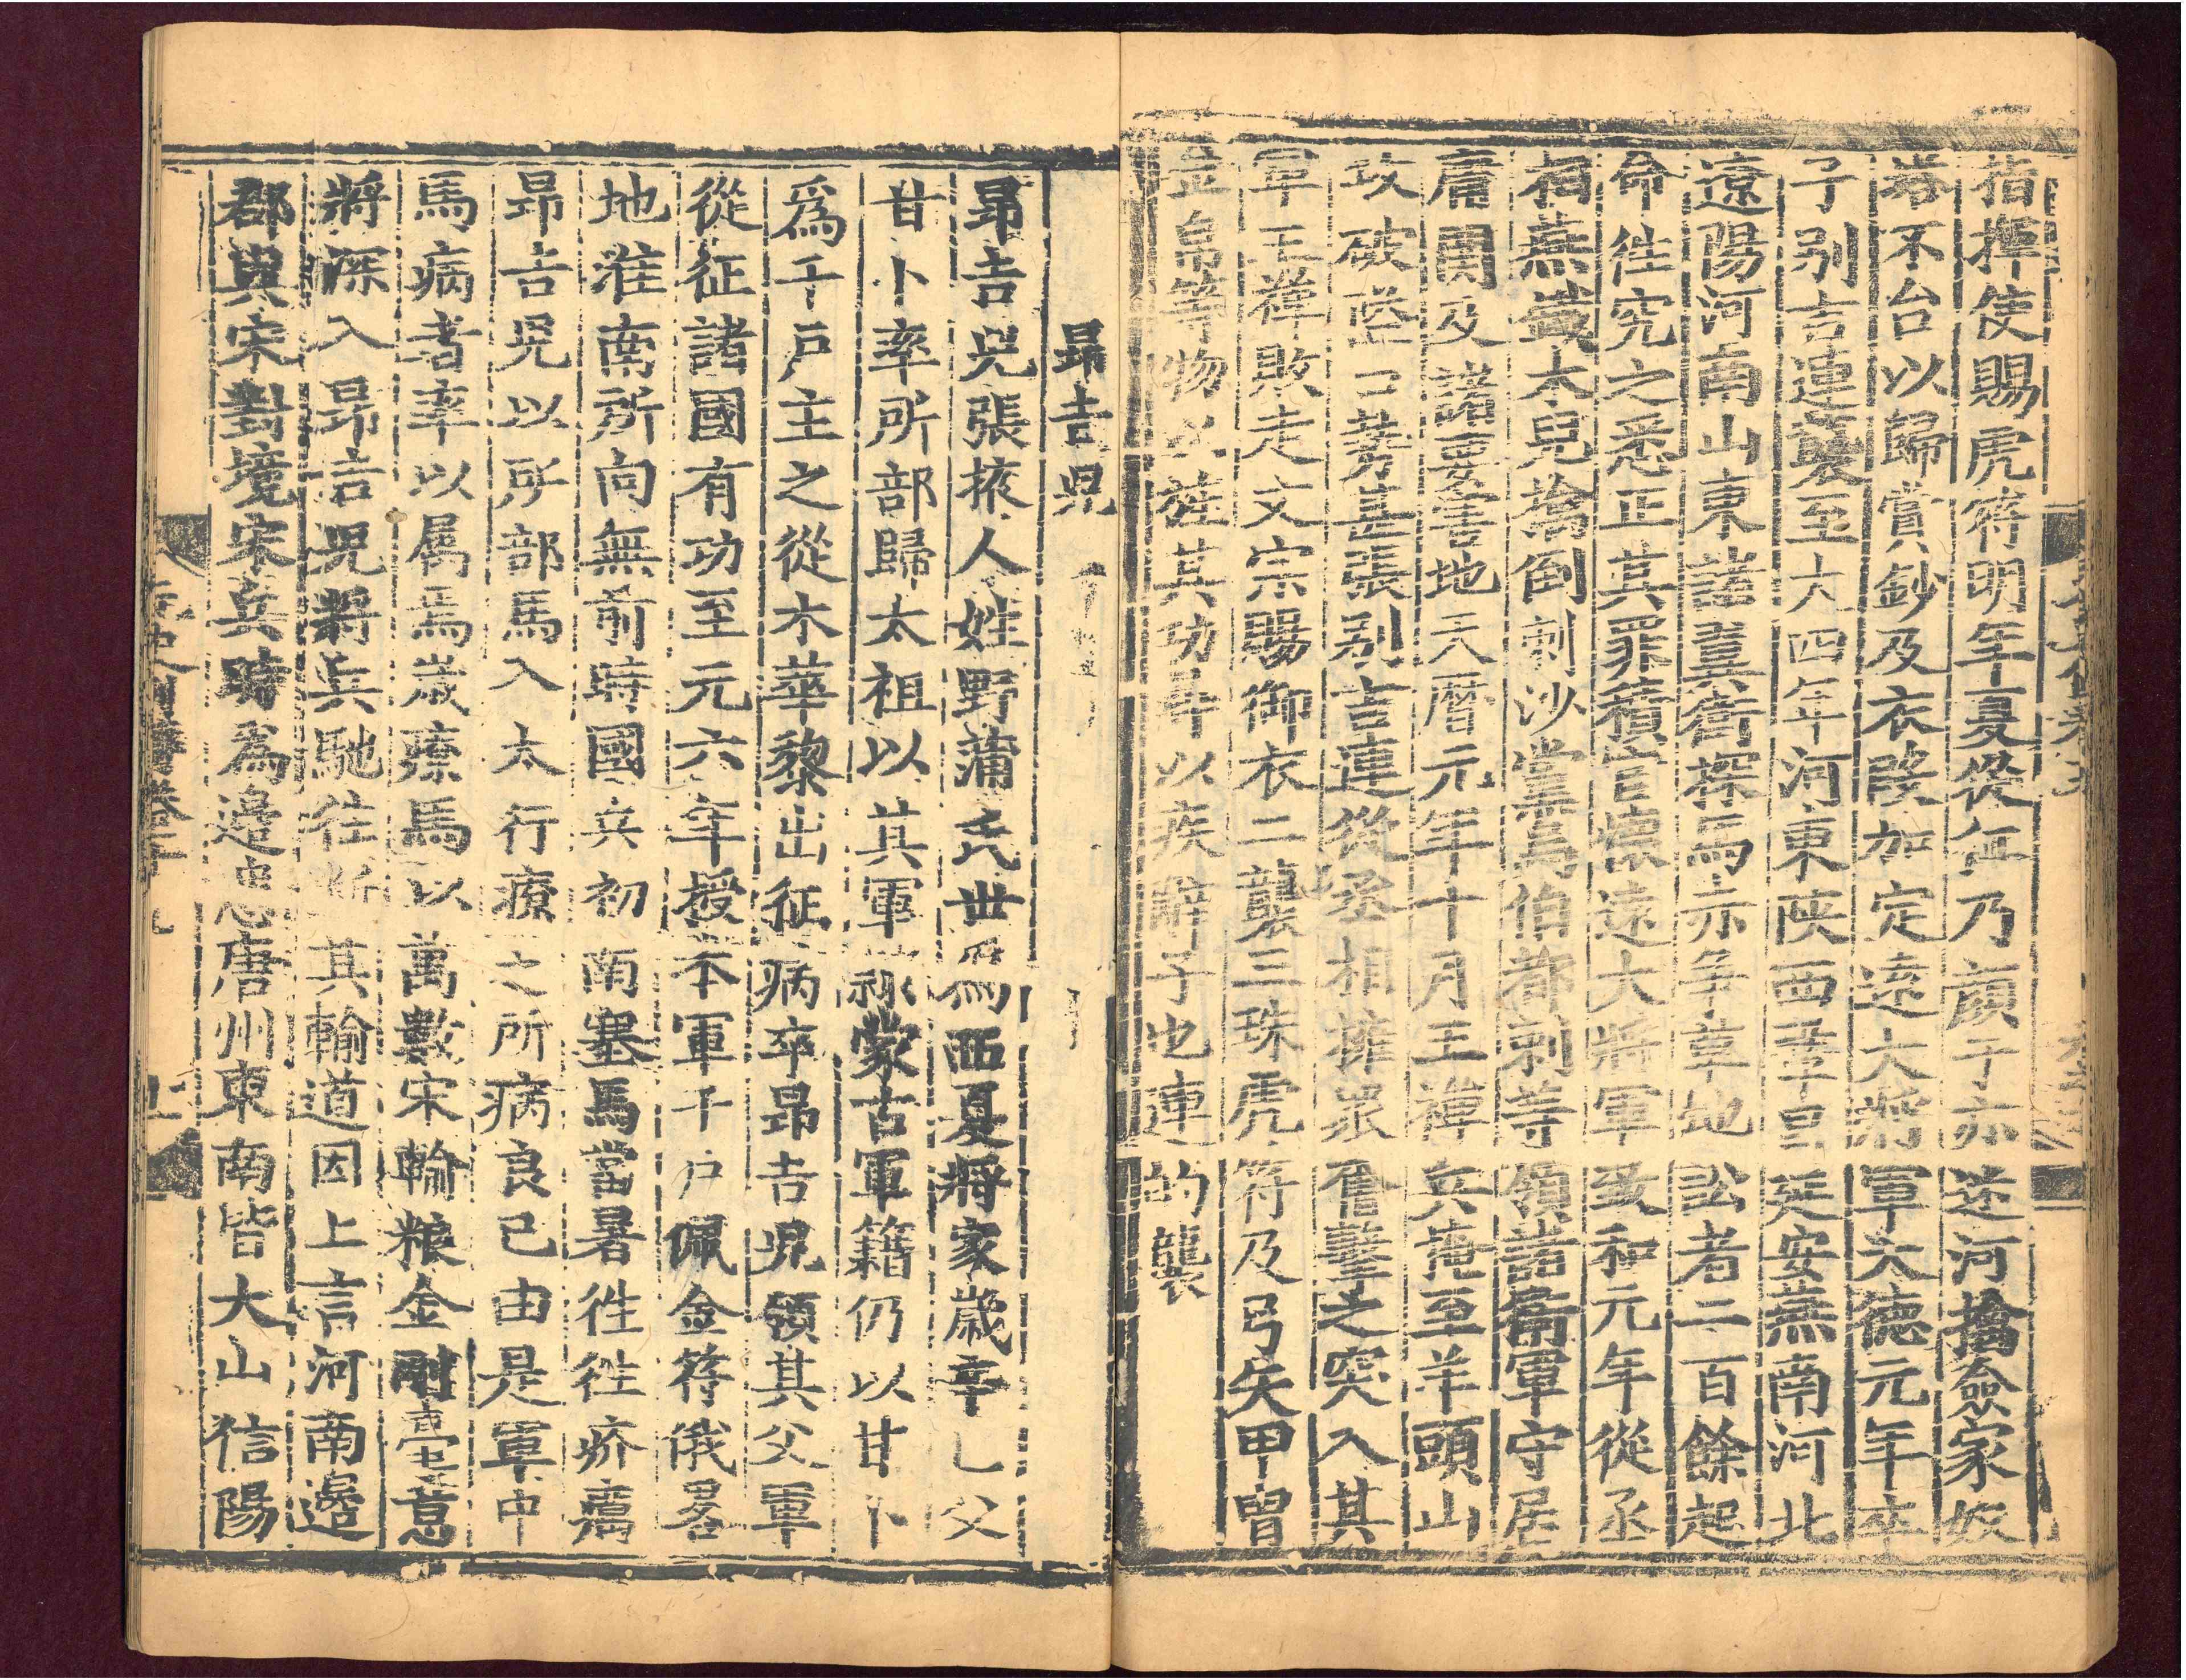 指揮使賜虎符明年夏從征乃顏于亦迷河擒僉家奴
答不台以歸賞鈔及衣段加定遠大將軍大德元年卒
子別吉連襲至大四年河東陝西鞏昌延安燕南河北
遼陽河南山東諸翼衛探馬赤爭草地訟者二百餘起
命往究之悉正其罪積官懷遠大將軍致和元年從丞
相燕鐵木兒擒倒剌沙黨烏伯都剌等領諸衛軍守居
庸關及諸要害地天曆元年十月王禪兵掩至羊頭山
攻破隘口勢甚張別吉連從丞相擁眾奮擊之突入其
軍王禪敗走文宗賜御衣二襲三珠虎符及弓矢甲冑
金帛等物以旌其功尋以疾辭子也連的襲
昻吉兒
昻吉兒張掖人姓野蒲氏世爲西夏將家歲辛巳父
甘卜率所部歸太祖以其軍隸蒙古軍籍仍以甘卜
爲千戶主之從木華黎出征病卒昻吉兒領其父軍
從征諸國有功至元六年授本軍千戶佩金符俄畧
地淮南所向無前時國兵初南塞馬當暑往往疥癘
昻吉兒以所部馬入太行療之所病良已由是軍中
馬病者率以屬焉歲療馬以萬數宋輸粮金剛臺意
將深入昻吉兒將兵馳往斷其輸道因上言河南邊
郡與宋對境宋兵時爲邊患唐州東南皆大山信陽